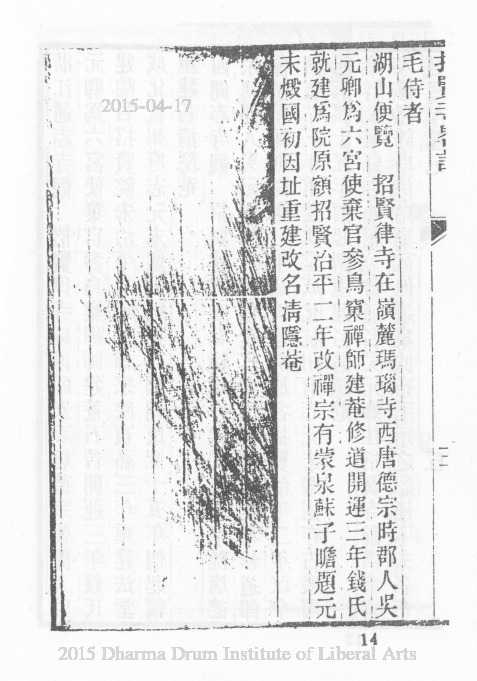 招賢寺畧記
毛侍者
湖山便覽 招賢律寺在嶺麓瑪瑙寺西唐德宗時郡人吳
元卿爲六宮使棄官參鳥窠禪師建菴修道開運三年錢氏
就建爲院原額招賢治平二年改禪宗有蒙泉蘇子瞻題元
末燬國初因址重建改名淸隱菴
2015-04-17
14
2015 Dharma Drum Institute of Liberal Arts